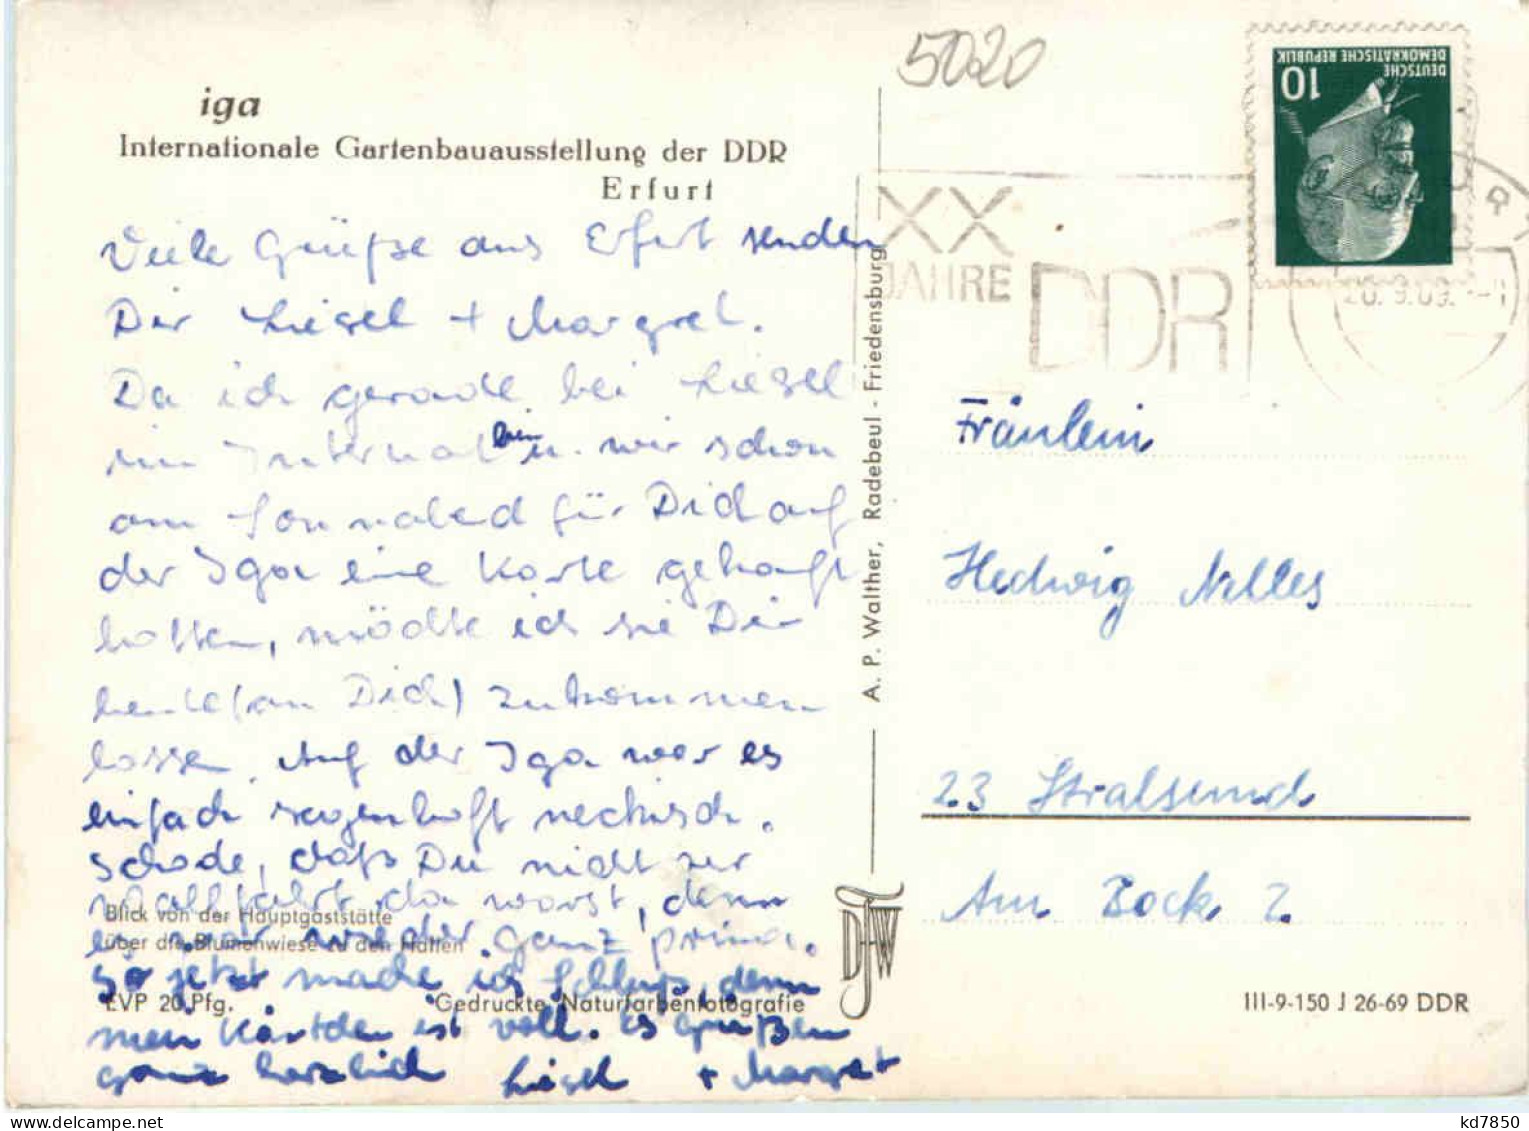 5020
iga
Internationale Gartenbauausstellung der DDR
Erfurt
Viele Grüße aus Erfurt senden
Dir Liesel + Margret.
Da ich gerade bei Liesel
im Internat bin u. wir schon
am Sonnabend für Dich auf
der Iga eine Karte gekauft
hatten, möchte ich sie Dir
heute (an Dich) zukommen
lassen. Auf der Iga war es
einfach sagenhaft neckisch.
Schade, daß Du nicht zur
Wallfahrt da warst, denn
es war wieder ganz prima.
So jetzt mache ich Schluß, denn
mein Kärtchen ist voll. Es grüßen
ganz herzlich Liesel + Margret
Blick von der Hauptgaststätte
über die Blumenwiese zu den Hallen
EVP 20 Pfg.
Gedruckte Naturfarbenfotografie
A. P. Walther, Radebeul - Friedensburg
DEUTSCHE
DEMOKRATISCHE REPUBLIK
10
XX
JAHRE DDR
Fräulein
Hedwig Nelles
23 Stralsund
Am Bock 2.
III-9-150 J 26-69 DDR
kd7850